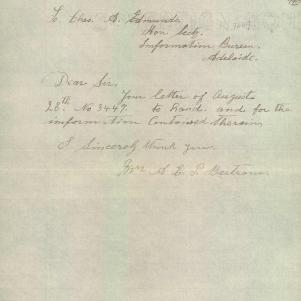 To Chas. A. Edmunds
Hon Secty.
Information Bureau.
Adelaide.
Dear Sir.
Your letter of August
28th No 3447. to hand. and for the
information contained therein,
I Sincerely thank you.
A. E. P. Bertram